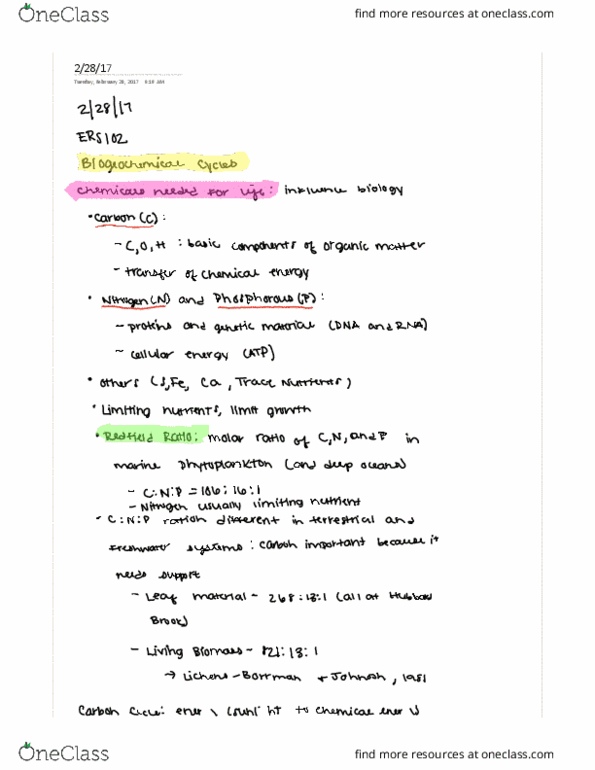 OneClass
find more resources at oneclass.com
2/28/17
Tuesday, February 28, 2017
2/28/17
ERS102
Biogeochemical Cycles
Chemicals needed for life: influence biology
• Carbon (C):
- C, O, H : basic components of organic matter
- transfer of chemical energy
• Nitrogen (N) and Phosphorous (P):
- proteins and genetic material (DNA and RNA)
- cellular energy (ATP)
• Others (S, Fe, Ca, Trace Nutrients)
• Limiting nutrients, limit growth
• Redfield Ratio: molar ratio of C, N, and P in
marine phytoplankton (and deep oceans)
- C:N:P = 106:16:1
- Nitrogen usually limiting nutrient
- C:N:P ration different in terrestrial and
freshwater systems: carbon important because it
needs support
- Leaf material - 268:13:1 (all at Hubbard
Brook)
- Living Biomass -
→ Lichens - + Johnson, 1981
Carbon Cycle: to chemical
OneClass
find more resources at oneclass.com